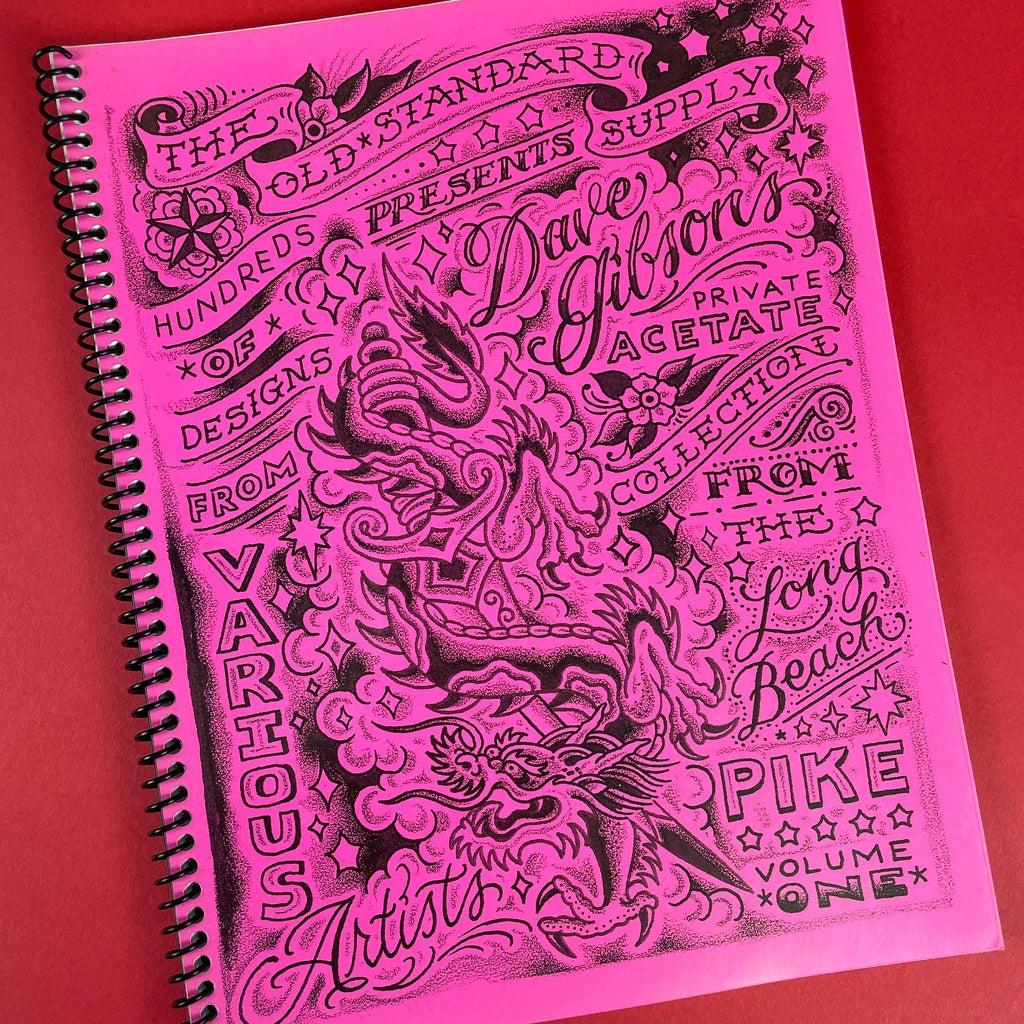 THE
OLD*STANDARD
SUPPLY
PRESENTS
Dave
Gibsons
PRIVATE
ACETATE
COLLECTION
FROM
THE
Long
Beach
PIKE
VOLUME
*ONE*
HUNDREDS
*OF*
DESIGNS
FROM
VARIOUS
Artists